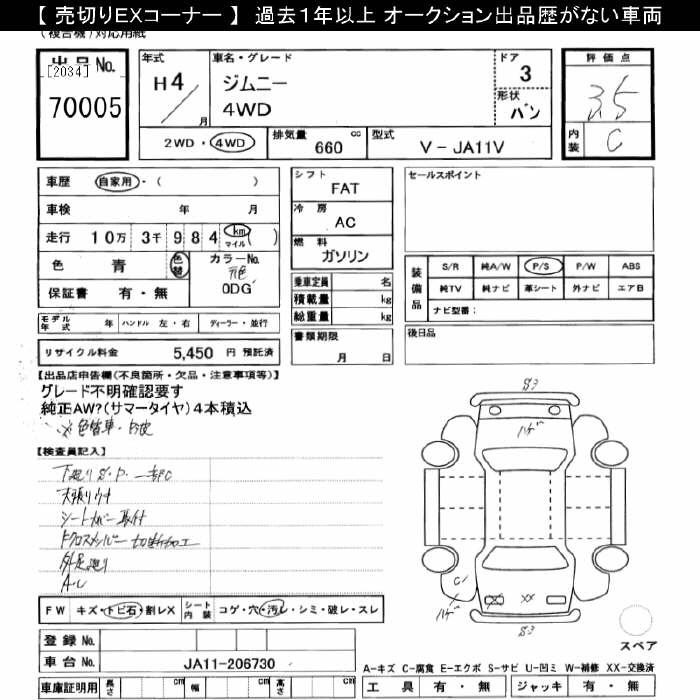 【 売切りEXコーナー 】 過去1年以上 オークション出品歴がない車両
(複合機)対応用紙
出品No.
[2034]
70005
年式
H4
月
車名・グレード
ジムニー
4WD
ドア
3
形状
バン
評価点
3.5
内装
C
2WD・4WD
排気量
660
cc
型式
V-JA11V
車歴
自家用・( )
車検 年 月
走行
10万 3千 9 8 4 km マイル ( )
色 青 色替
カラーNo.
元色
0DG
保証書 有・無
モデル年式 年
ハンドル 左・右
ディーラー・並行
リサイクル料金 5,450 円 預託済
シフト
FAT
冷房
AC
燃料
ガソリン
乗車定員 名
積載量 kg
総重量 kg
書類期限
月 日
セールスポイント
装備品
S/R 純A/W P/S P/W ABS
純TV 純ナビ 革シート 外ナビ エアB
ナビ型番:
後日品
【出品店申告欄(不良箇所・欠品・注意事項等)】
グレード不明確認要す
純正AW?(サマータイヤ)4本積込
色替車・
【検査員記入】
下廻りS.P.
天張り
シートカバー取付
クロスメンバー切断加工
外足廻り
FW キズ・トビ石・割レX
シート内装 コゲ・穴・汚レ・シミ・破レ・スレ
登録No.
車台No. JA11-206730
車庫証明用 長さ cm 幅 cm 高さ cm
S3
ハゲ
C
ハゲ
XX
XX
S3
スペア
A-キズ C-腐食 E-エクボ S-サビ U-凹ミ W-補修 XX-交換済
工具 有・無 ジャッキ 有・無